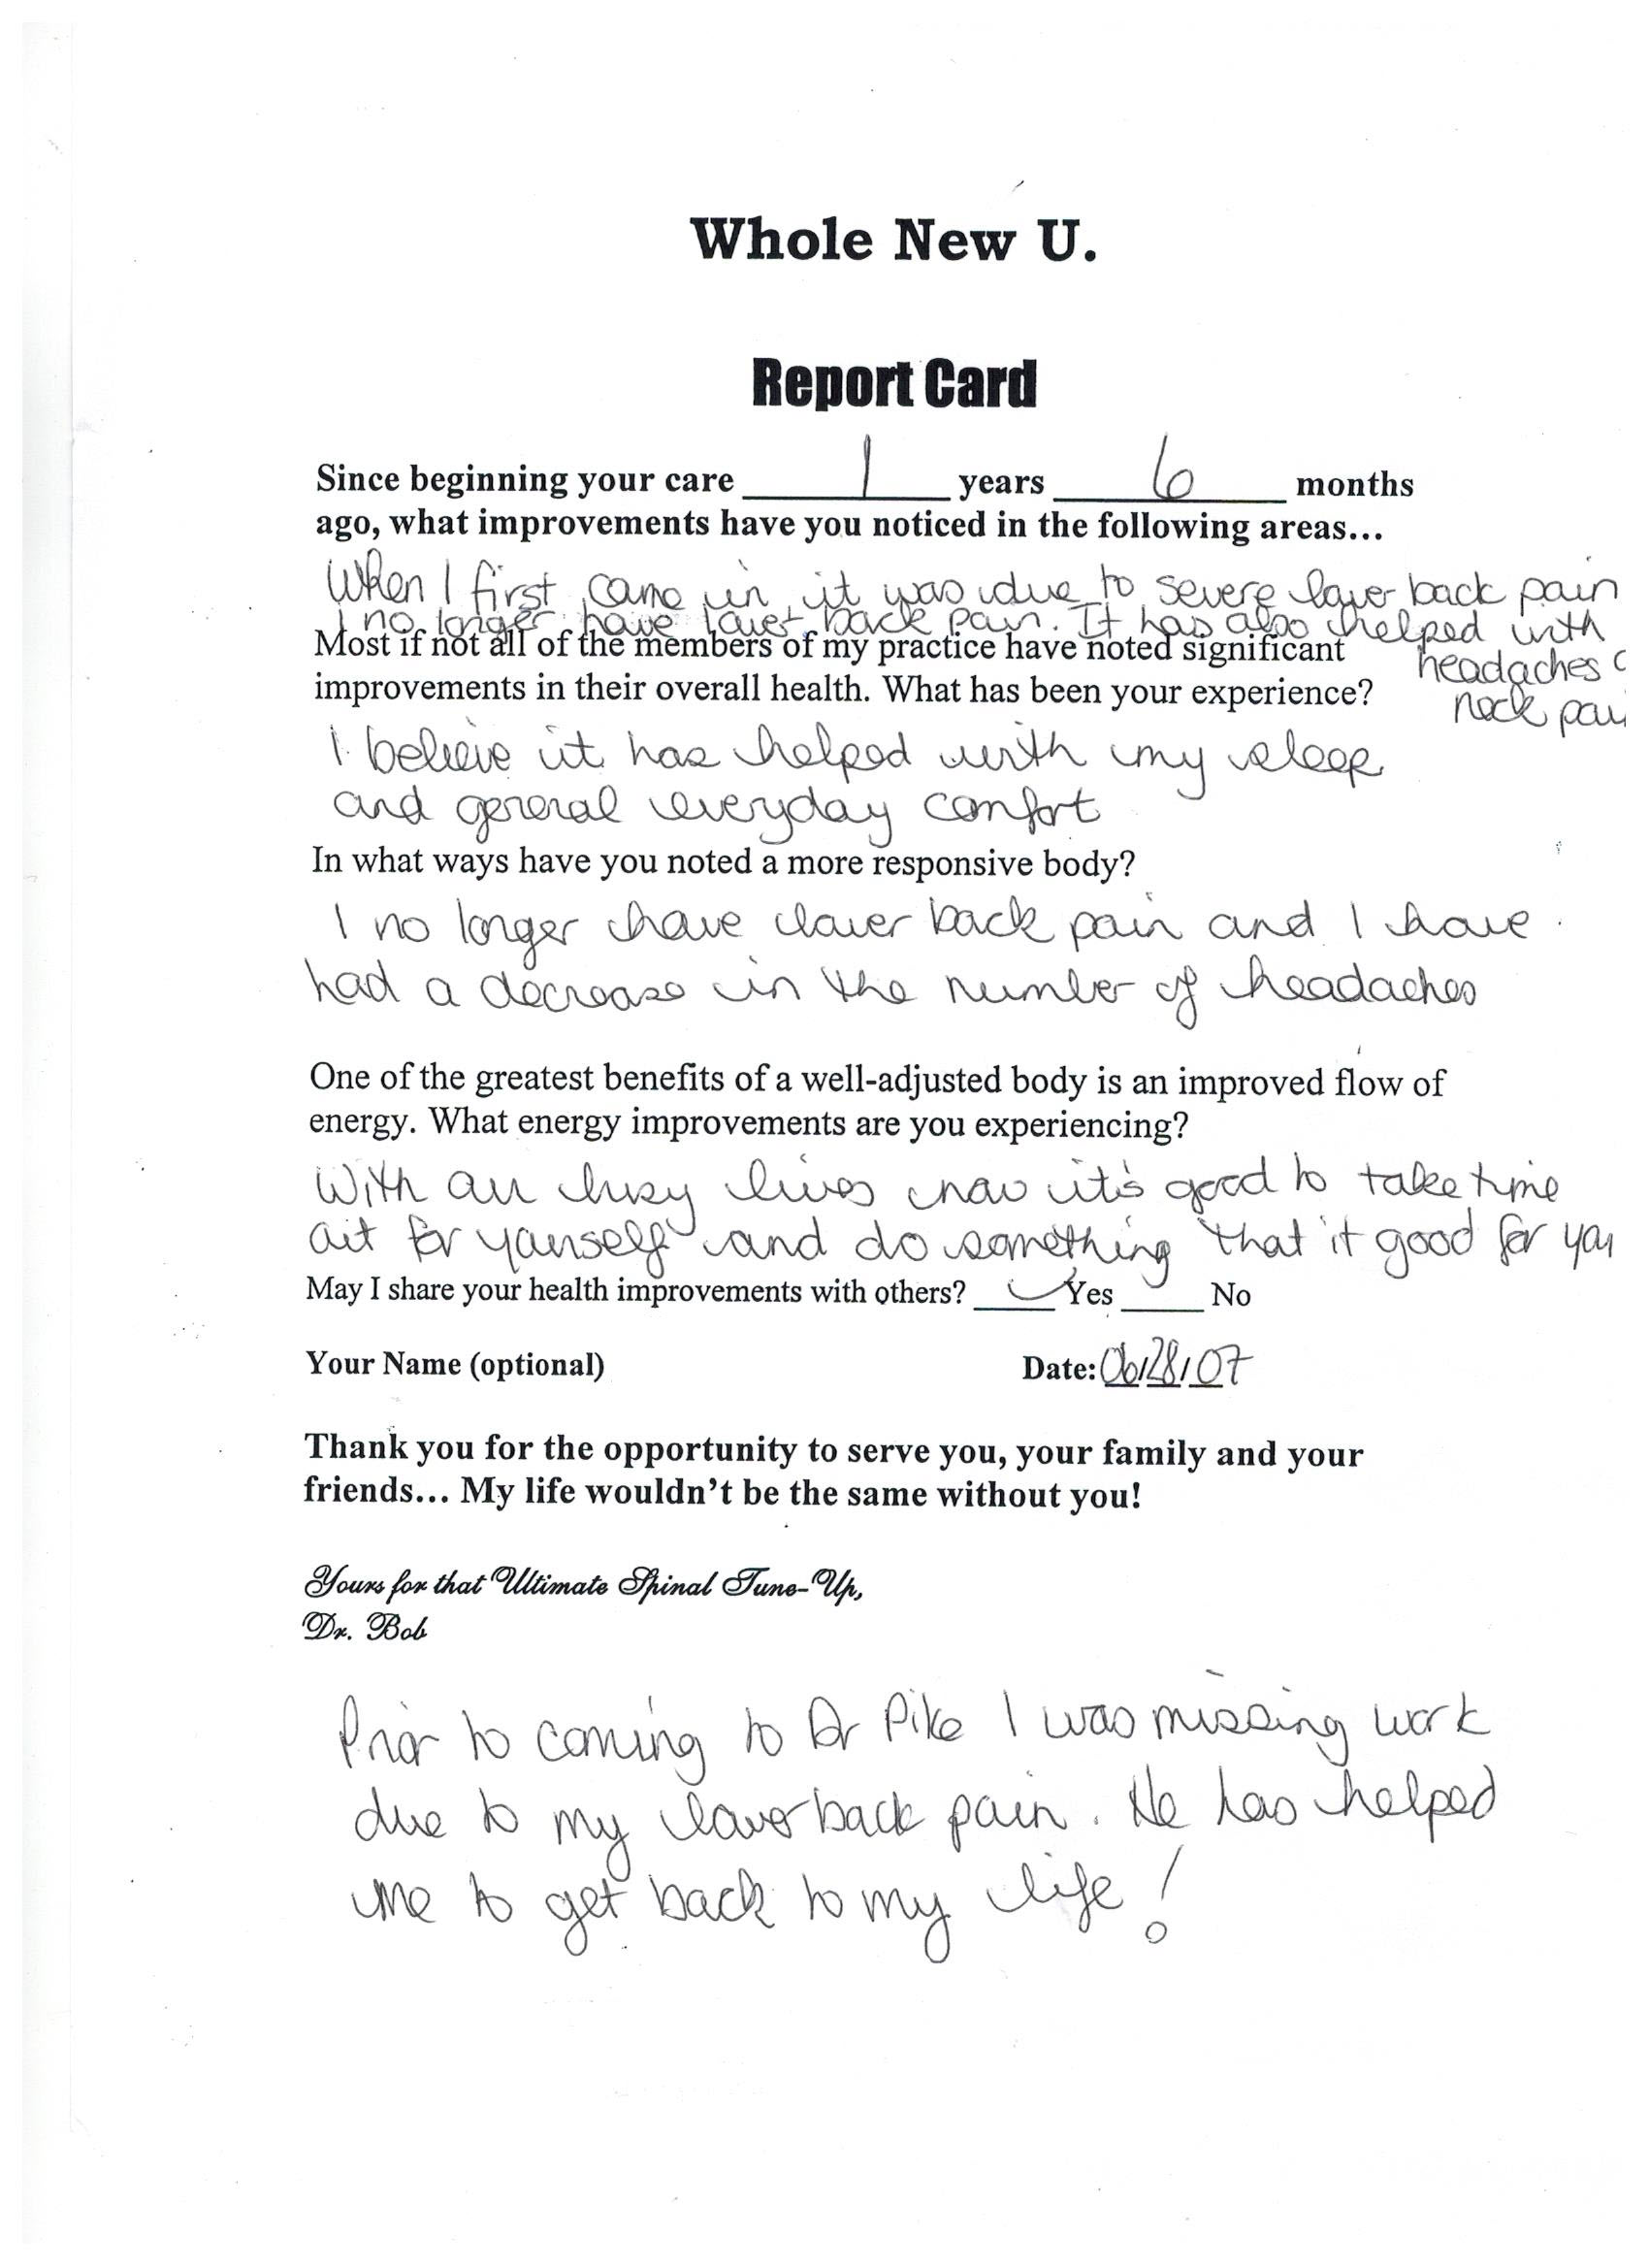 Whole New U.
Report Card
Since beginning your care 1 years 6 months
ago, what improvements have you noticed in the following areas...
When I first came in it was due to severe lower back pain
I no longer have lower back pain. It has also helped with
headaches
neck
Most if not all of the members of my practice have noted significant
improvements in their overall health. What has been your experience?
I believe it has helped with my sleep
and general everyday comfort
In what ways have you noted a more responsive body?
I no longer have lower back pain and I have
had a decrease in the number of headaches
One of the greatest benefits of a well-adjusted body is an improved flow of
energy. What energy improvements are you experiencing?
With our busy lives now it's good to take time
out for yourself and do something that it good for you
May I share your health improvements with others? ✓ Yes ____ No
Your Name (optional) Date: 06/28/07
Thank you for the opportunity to serve you, your family and your
friends... My life wouldn't be the same without you!
Yours for that Ultimate Spinal Tune-Up,
Dr. Bob
Prior to coming to Dr Pike I was missing work
due to my lower back pain. He has helped
me to get back to my life!